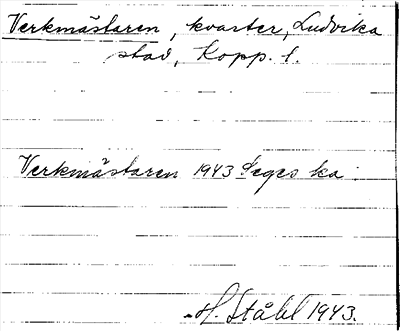 Verkmästaren, kvarter, Ludvika
stad, Kopp. l.
Verkmästaren 1943 Seges ka.
H. Ståhl 1943.